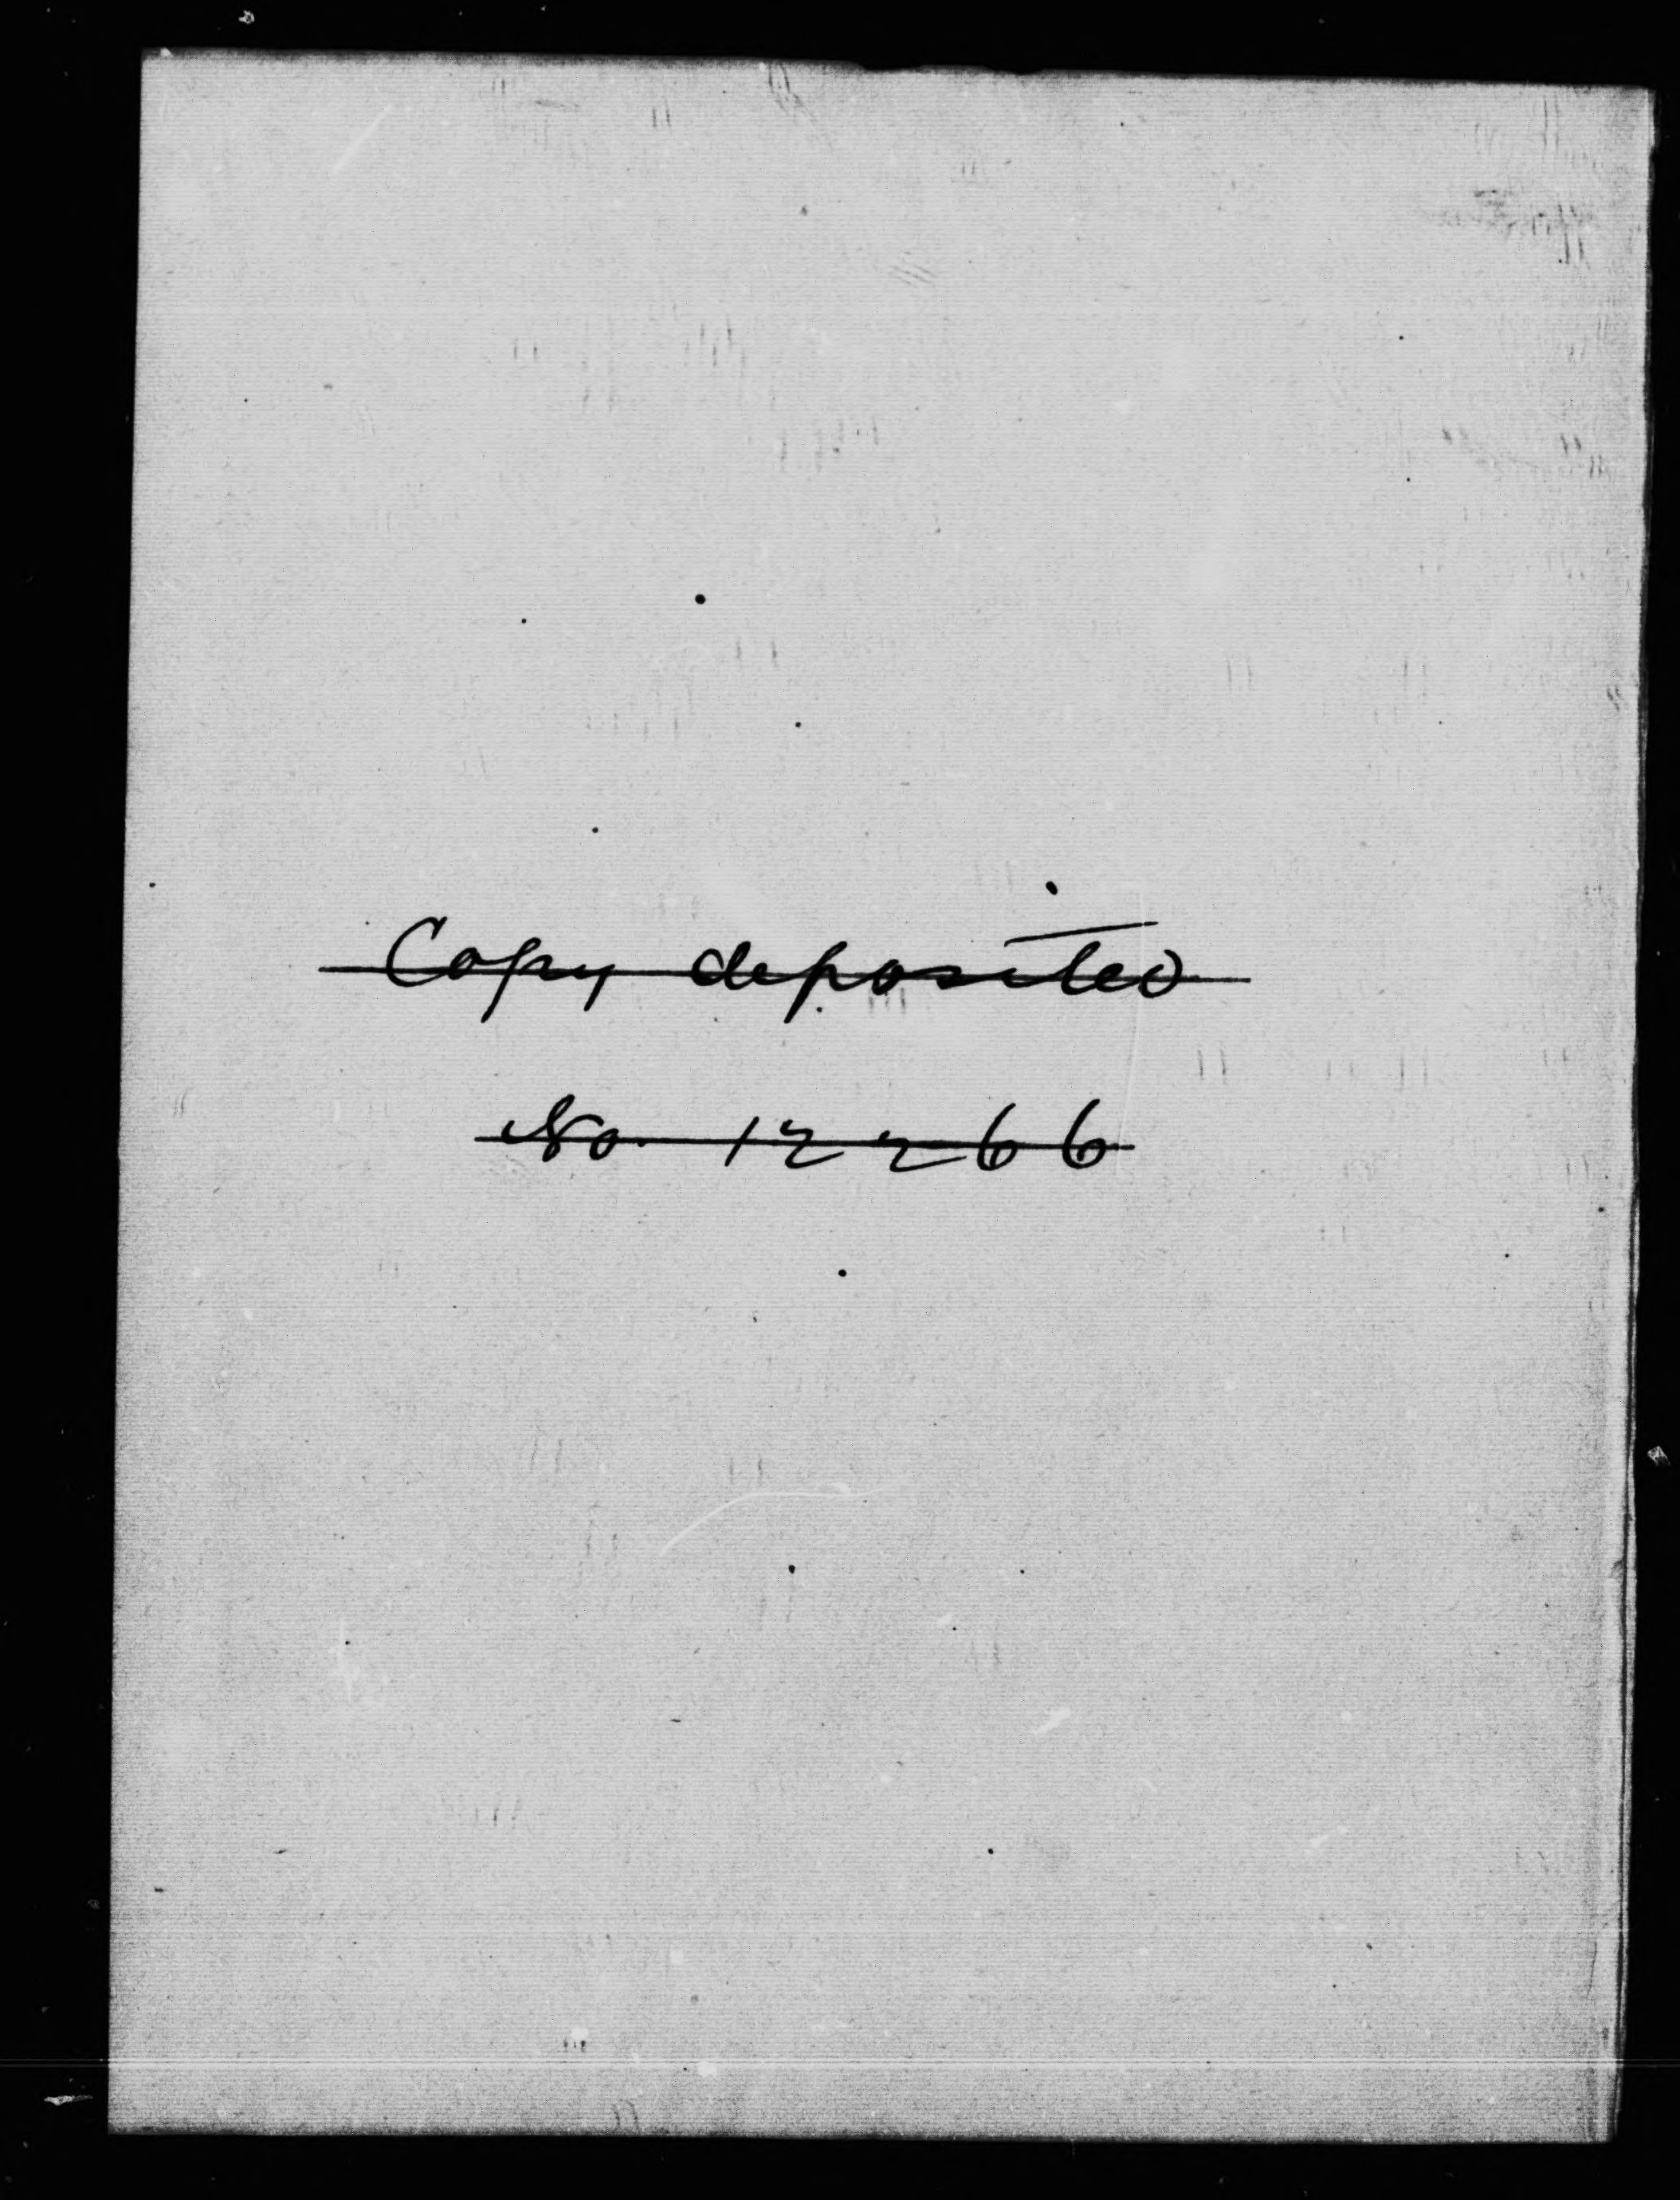 Copy deposited
No. 12266